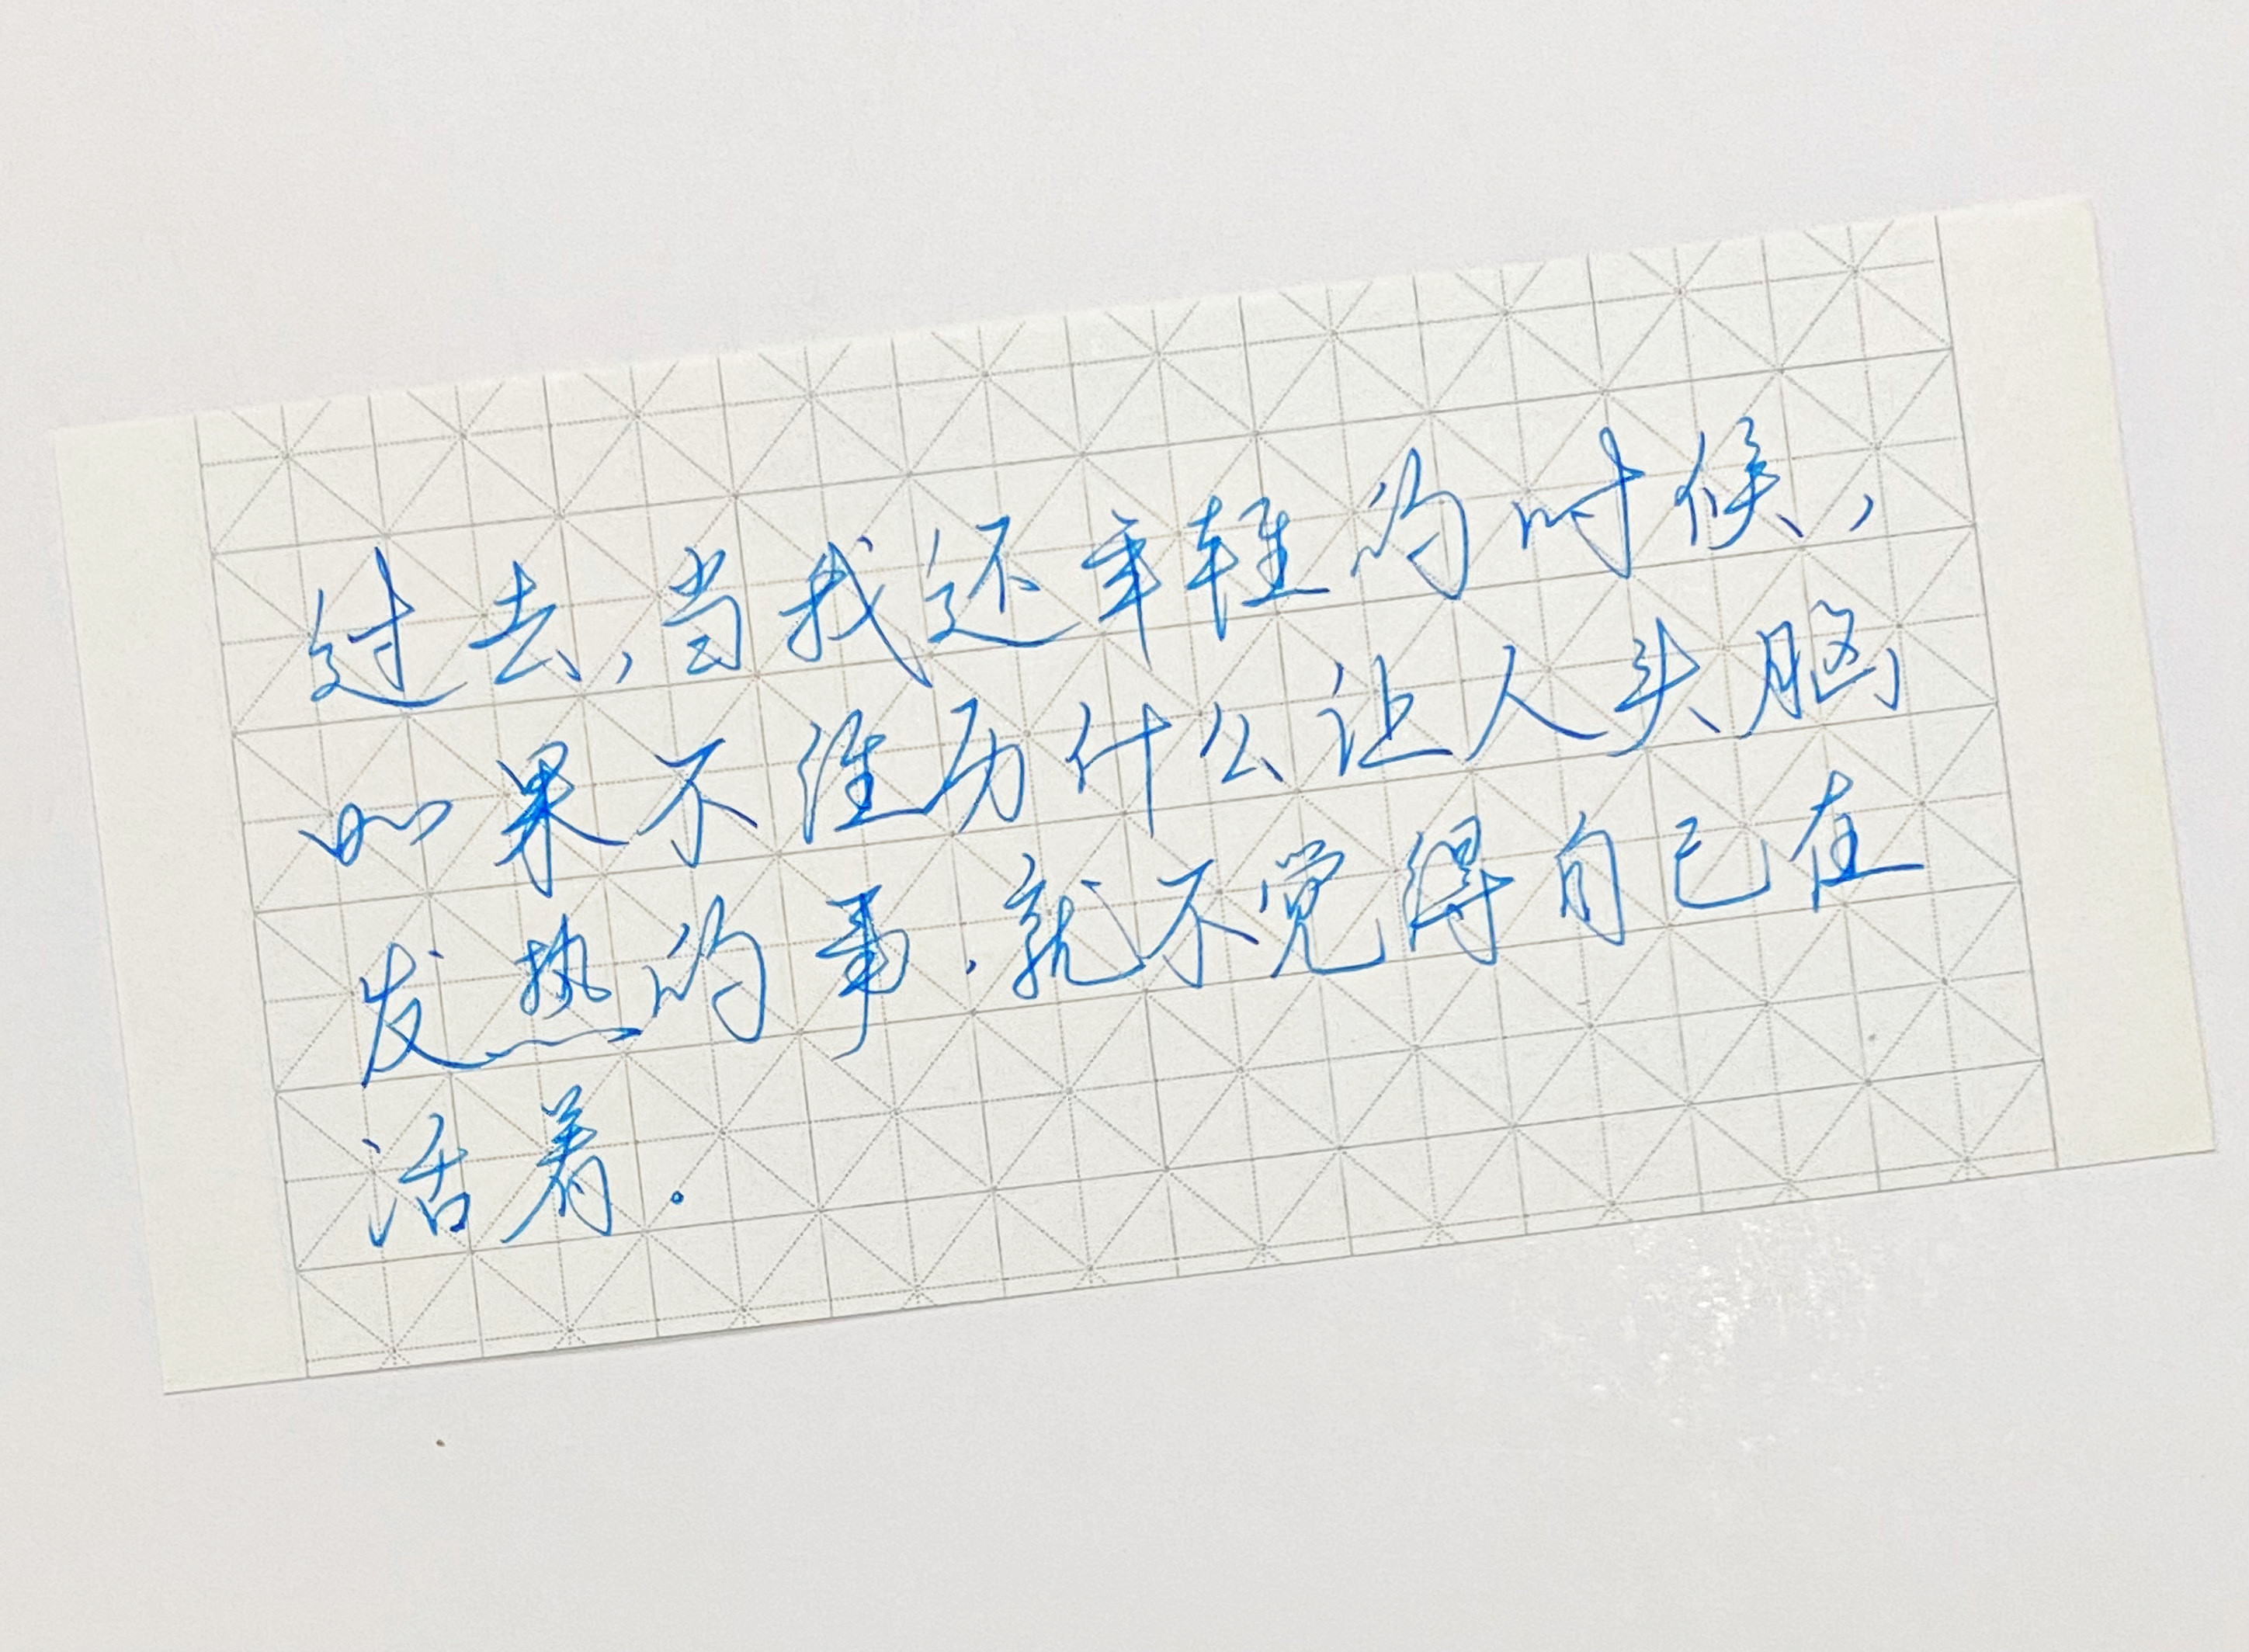 过去,当我还年轻的时候,
如果不经历什么让人头脑
发热的事.就不觉得自己在
活着.